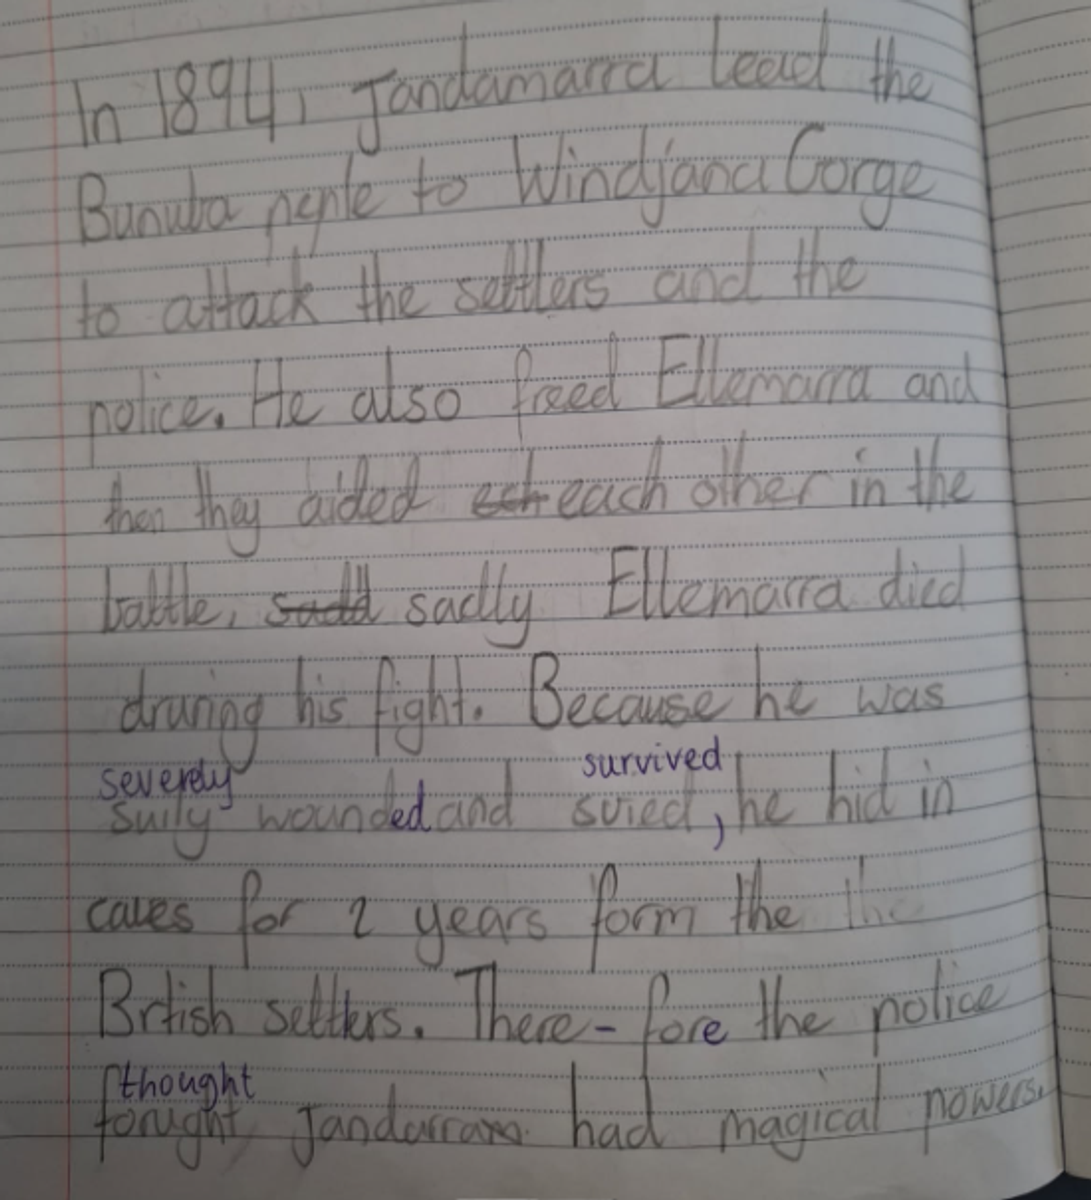 In 1894, Jandamarra lead the
Bunuba peple to Windjana Gorge
to attack the settlers and the
police. He also freed Ellemarra and
then they aided ech each other in the
battle, sadd sadly Ellemarra died
druring his fight. Because he was
severely survived
suily wounded and suied, he hid in
caves for 2 years form the the
Brtish settlers. There- fore the police
thought
forught Jandarram had magical powers.